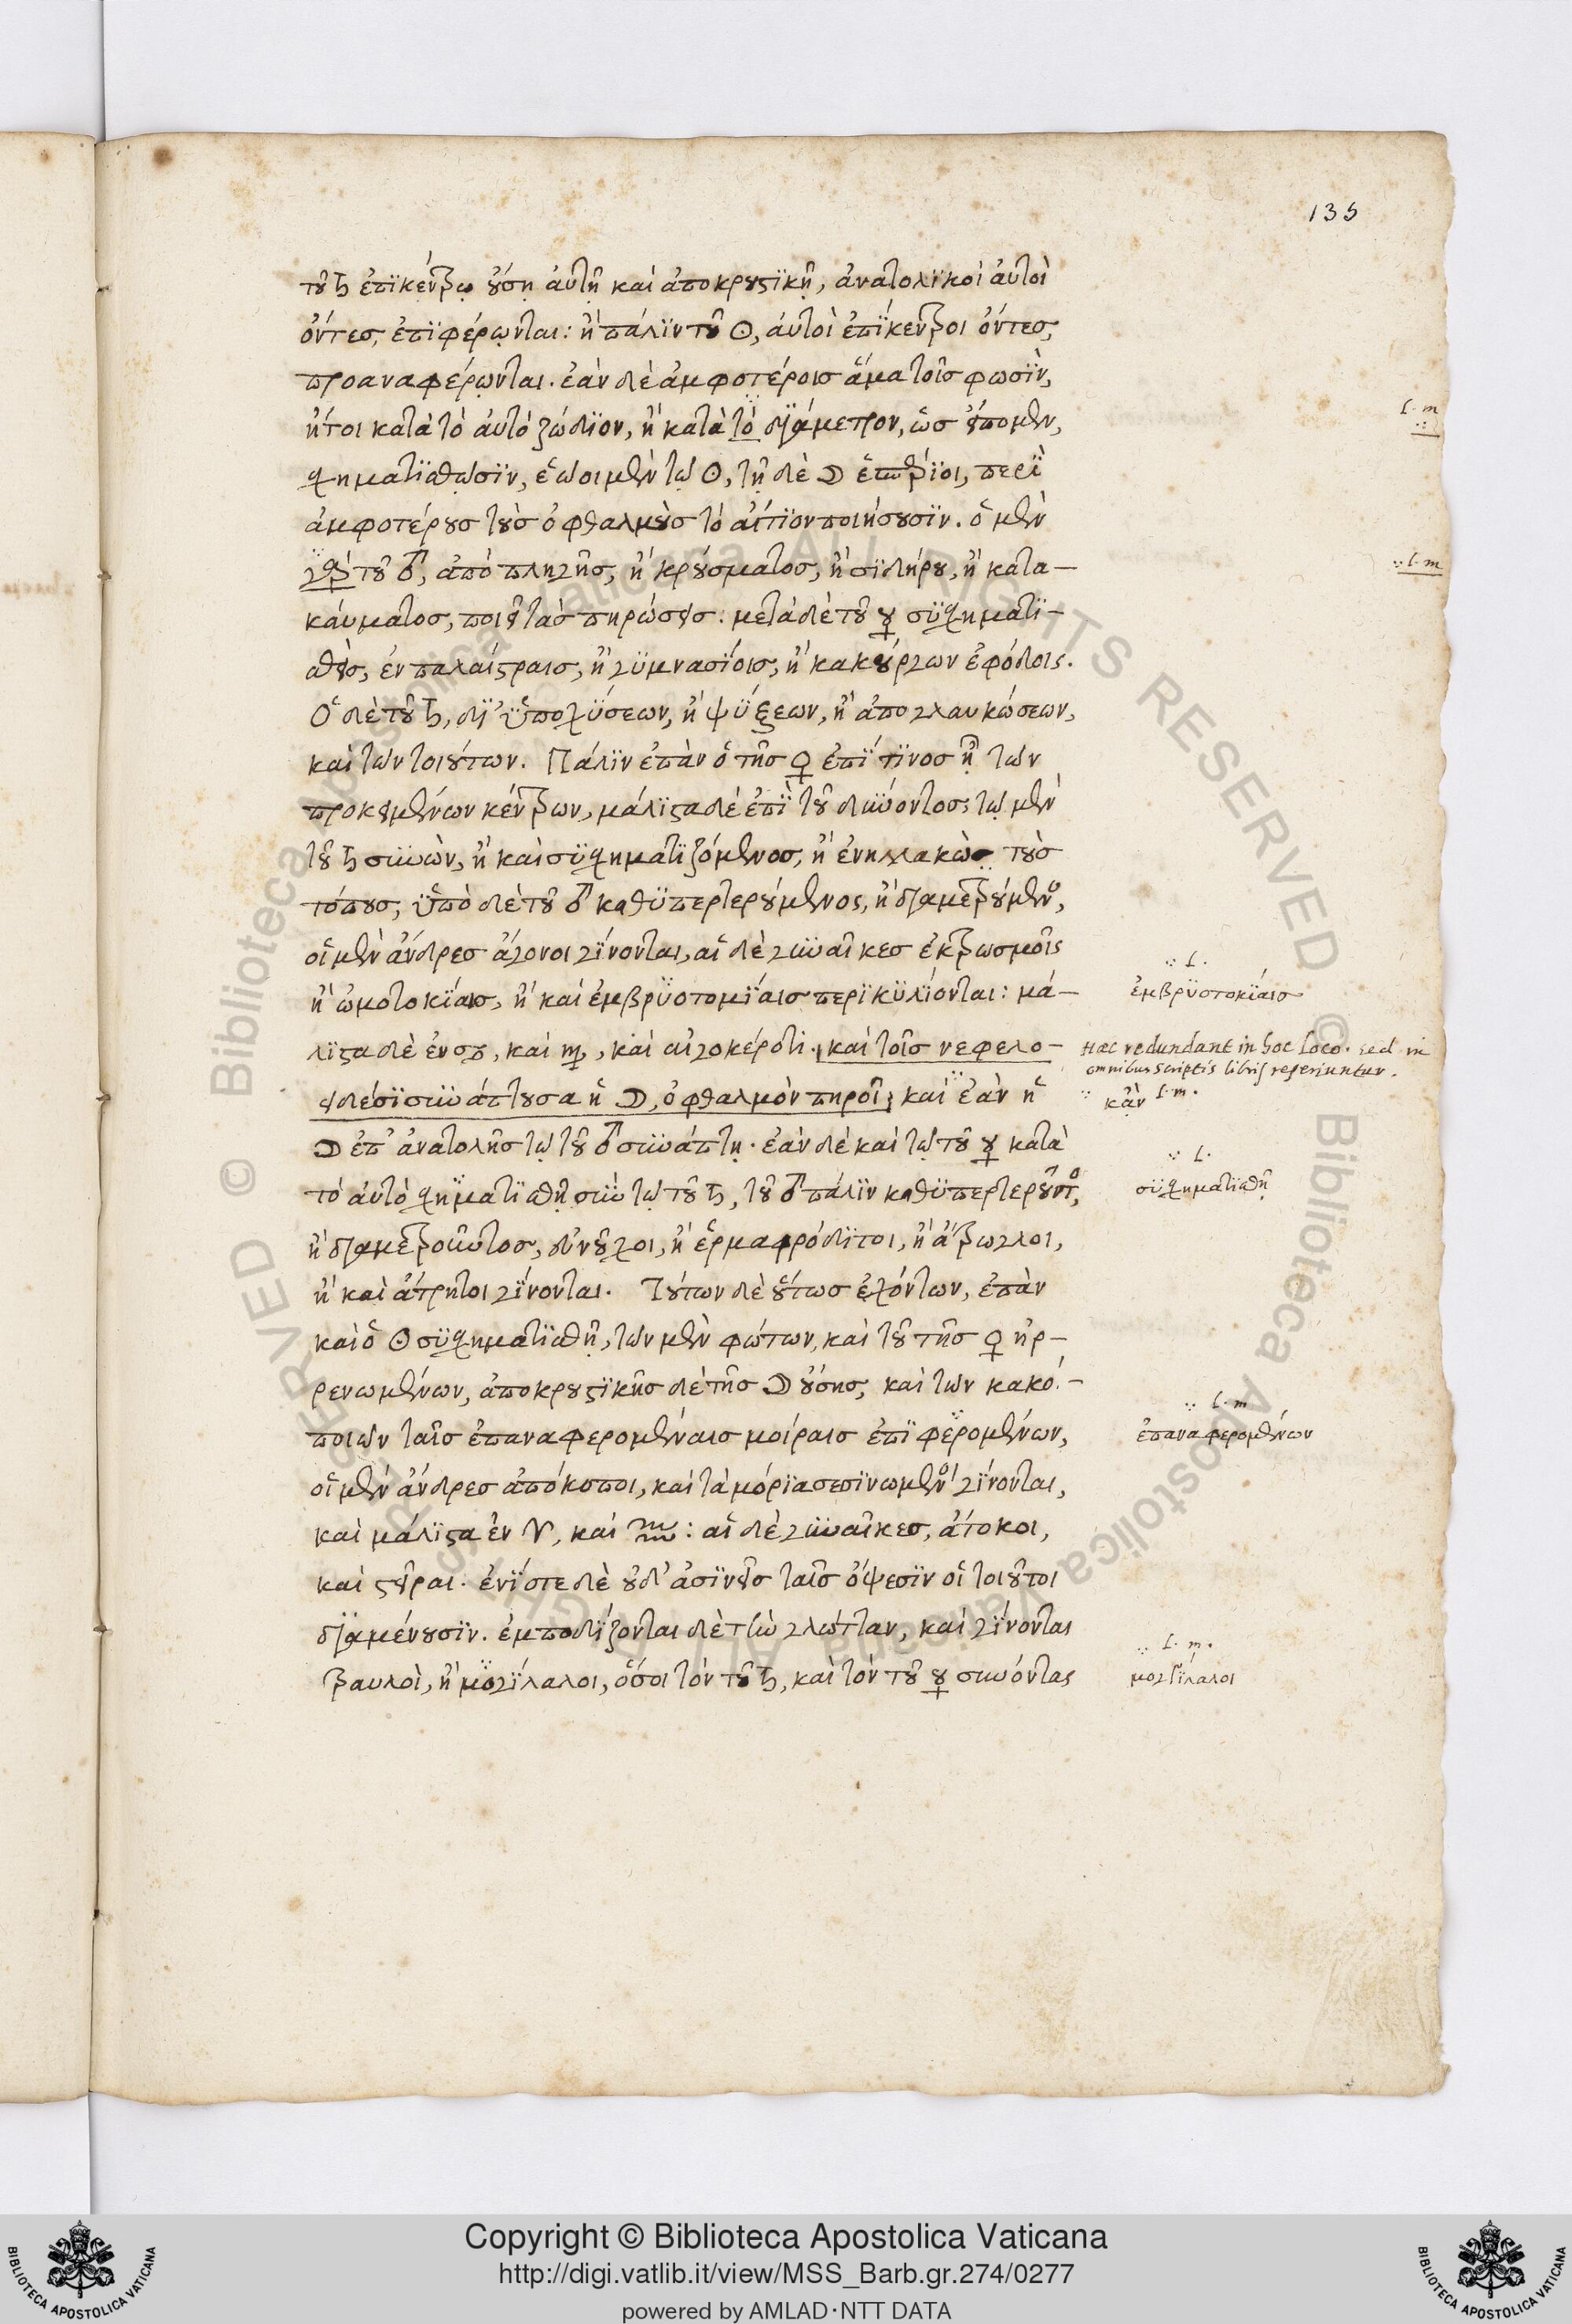 135
τοῦ ♄ ἐπικέντρῳ οὔσῃ αὐτῇ καὶ ἀποκρουστικῇ, ἀνατολικοὶ αὐτοὶ
ὄντες, ἐπιφέρωνται: ἢ πάλιν τοῦ ☉, αὐτοὶ ἐπίκεντροι ὄντες,
προαναφέρωνται. ἐὰν δὲ ἀμφοτέροις ἅμα τοῖς φωσὶν,
ἤτοι κατὰ τὸ αὐτὸ ζώδιον, ἢ κατὰ τὸ διάμετρον, ὡς εἴπομεν,
L. m
σχηματισθῶσιν, ἑῷοι μὲν τῷ ☉, τῇ δὲ ☽ ἑσπέριοι, περὶ
ἀμφοτέρους τοὺς ὀφθαλμοὺς τὸ αἴτιον ποιήσουσιν. ὁ μὲν
γὰρ τοῦ ♂, ἀπὸ πληγῆς, ἢ κρούσματος, ἢ σιδήρου, ἢ κατα-
L. m
καύματος, ποιεῖ τὰς πηρώσεις: μετὰ δὲ τοῦ ☿ συσχηματι-
σθεὶς, ἐν παλαίστραις, ἢ γυμνασίοις, ἢ κακούργων ἐφόδοις.
Ὁ δὲ τοῦ ♄, δι' ὑποχύσεων, ἢ ψύξεων, ἢ ἀπογλαυκώσεων,
καὶ τῶν τοιούτων. Πάλιν ἐπὰν ὁ τῆς ♀ ἐπί τινος ᾖ τῶν
προκειμένων κέντρων, μάλιστα δὲ ἐπὶ τοῦ δύνοντος, τῷ μὲν
τοῦ ♄ συνὼν, ἢ καὶ συσχηματιζόμενος, ἢ ἐνηλλακὼς τοὺς
τόπους, ὑπὸ δὲ τοῦ ♂ καθυπερτερούμενος, ἢ διαμετρούμενος,
οἱ μὲν ἄνδρες ἄγονοι γίνονται, αἱ δὲ γυναῖκες ἐκτρωσμοῖς
L.
ἢ ὠμοτοκίαις, ἢ καὶ ἐμβρυοτομίαις περικυλίονται: μά-
ἐμβρυοτοκίαις
λιστα δὲ ἐν ♋, καὶ ♍, καὶ αἰγοκέρωτι. καὶ τοῖς νεφελο-
Hæc redundant in hoc loco. sed in
omnibus scriptis libris reperiuntur.
ειδέσι συνάπτουσα ἡ ☽, ὀφθαλμὸν πηροῖ, καὶ ἐὰν ἡ
κἂν L. m.
☽ ἐπ' ἀνατολῆς τῷ τοῦ ♂ συνάπτῃ. ἐὰν δὲ καὶ τῷ τοῦ ☿ κατὰ
L.
τὸ αὐτὸ σχηματισθῇ σὺν τῷ τοῦ ♄, τοῦ ♂ πάλιν καθυπερτεροῦντος,
συσχηματισθῇ
ἢ διαμετροῦντος, εὐνοῦχοι, ἢ ἑρμαφρόδιτοι, ἢ ἄτρωγλοι,
ἢ καὶ ἄτρητοι γίνονται. Τούτων δὲ οὕτως ἐχόντων, ἐπὰν
καὶ ὁ ☉ συσχηματισθῇ, τῶν μὲν φώτων, καὶ τοῦ τῆς ♀ ἠρ-
ρενωμένων, ἀποκρουστικῆς δὲ τῆς ☽ οὔσης, καὶ τῶν κακο-
L. m
ποιῶν ταῖς ἐπαναφερομέναις μοίραις ἐπιφερομένων,
ἐπαναφερομένων
οἱ μὲν ἄνδρες ἀπόκοποι, καὶ τὰ μόρια σεσινωμένοι γίνονται,
καὶ μάλιστα ἐν ♈, καὶ ♒: αἱ δὲ γυναῖκες, ἄτοκοι,
καὶ στεῖραι. ἐνίοτε δὲ οὐδ' ἀσινεῖς ταῖς ὄψεσιν οἱ τοιοῦτοι
διαμένουσιν. ἐμποδίζονται δὲ τὴν γλώτταν, καὶ γίνονται
L. m.
τραυλοὶ, ἢ μογίλαλοι, ὅσοι τὸν τοῦ ♄, καὶ τὸν τοῦ ☿ συνόντας
μογγίλαλοι
© Biblioteca Apostolica Vaticana ALL RIGHTS RESERVED © Biblioteca Apostolica Vaticana ALL RIGHTS RESERVED
Copyright © Biblioteca Apostolica Vaticana
http://digi.vatlib.it/view/MSS_Barb.gr.274/0277
powered by AMLAD･NTT DATA
BIBLIOTECA APOSTOLICA VATICANA
BIBLIOTECA APOSTOLICA VATICANA